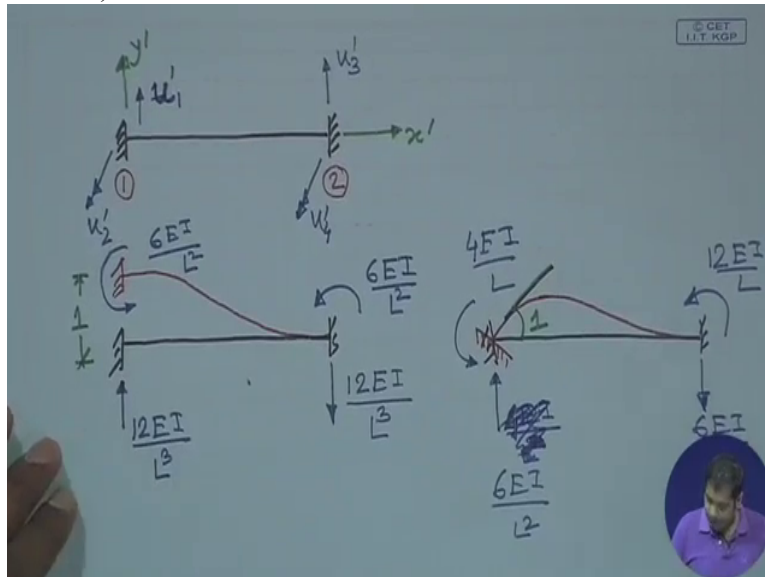 © CET
I.I.T. KGP
y'
u'₁
u'₃
x'
① ②
u'₂
u'₄
6EI/L²
1
6EI/L²
12EI/L³
12EI/L³
4EI/L
1
12EI/L
6EI/L²
6EI